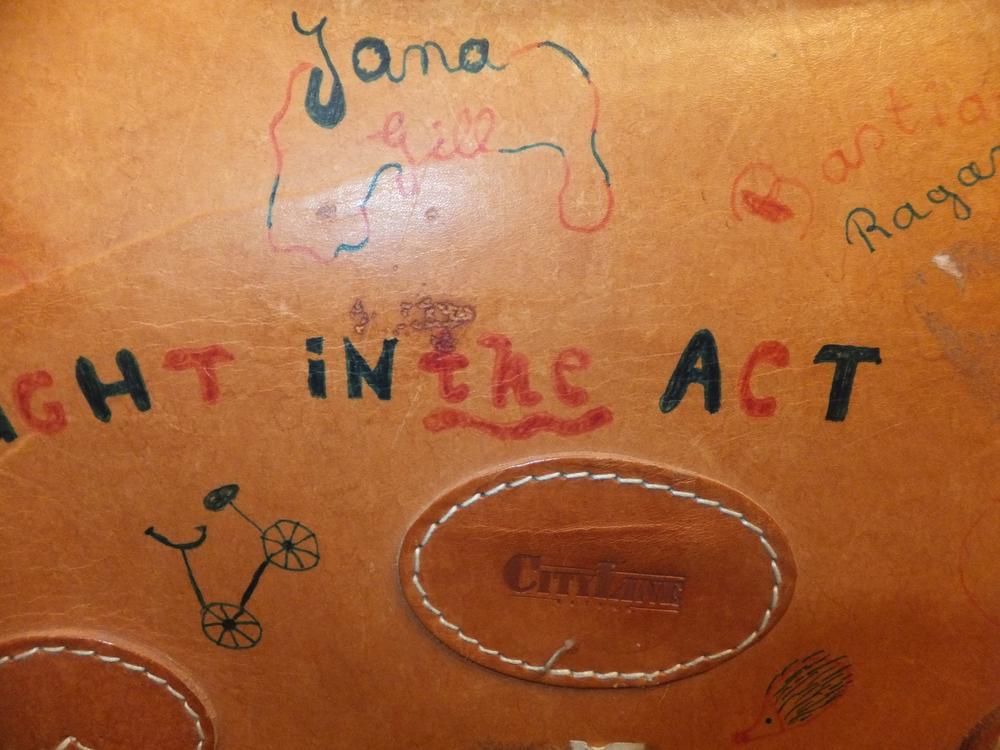 Jana
Gill
Bastia
Ragar
GHT iN the ACT
CITYLINE